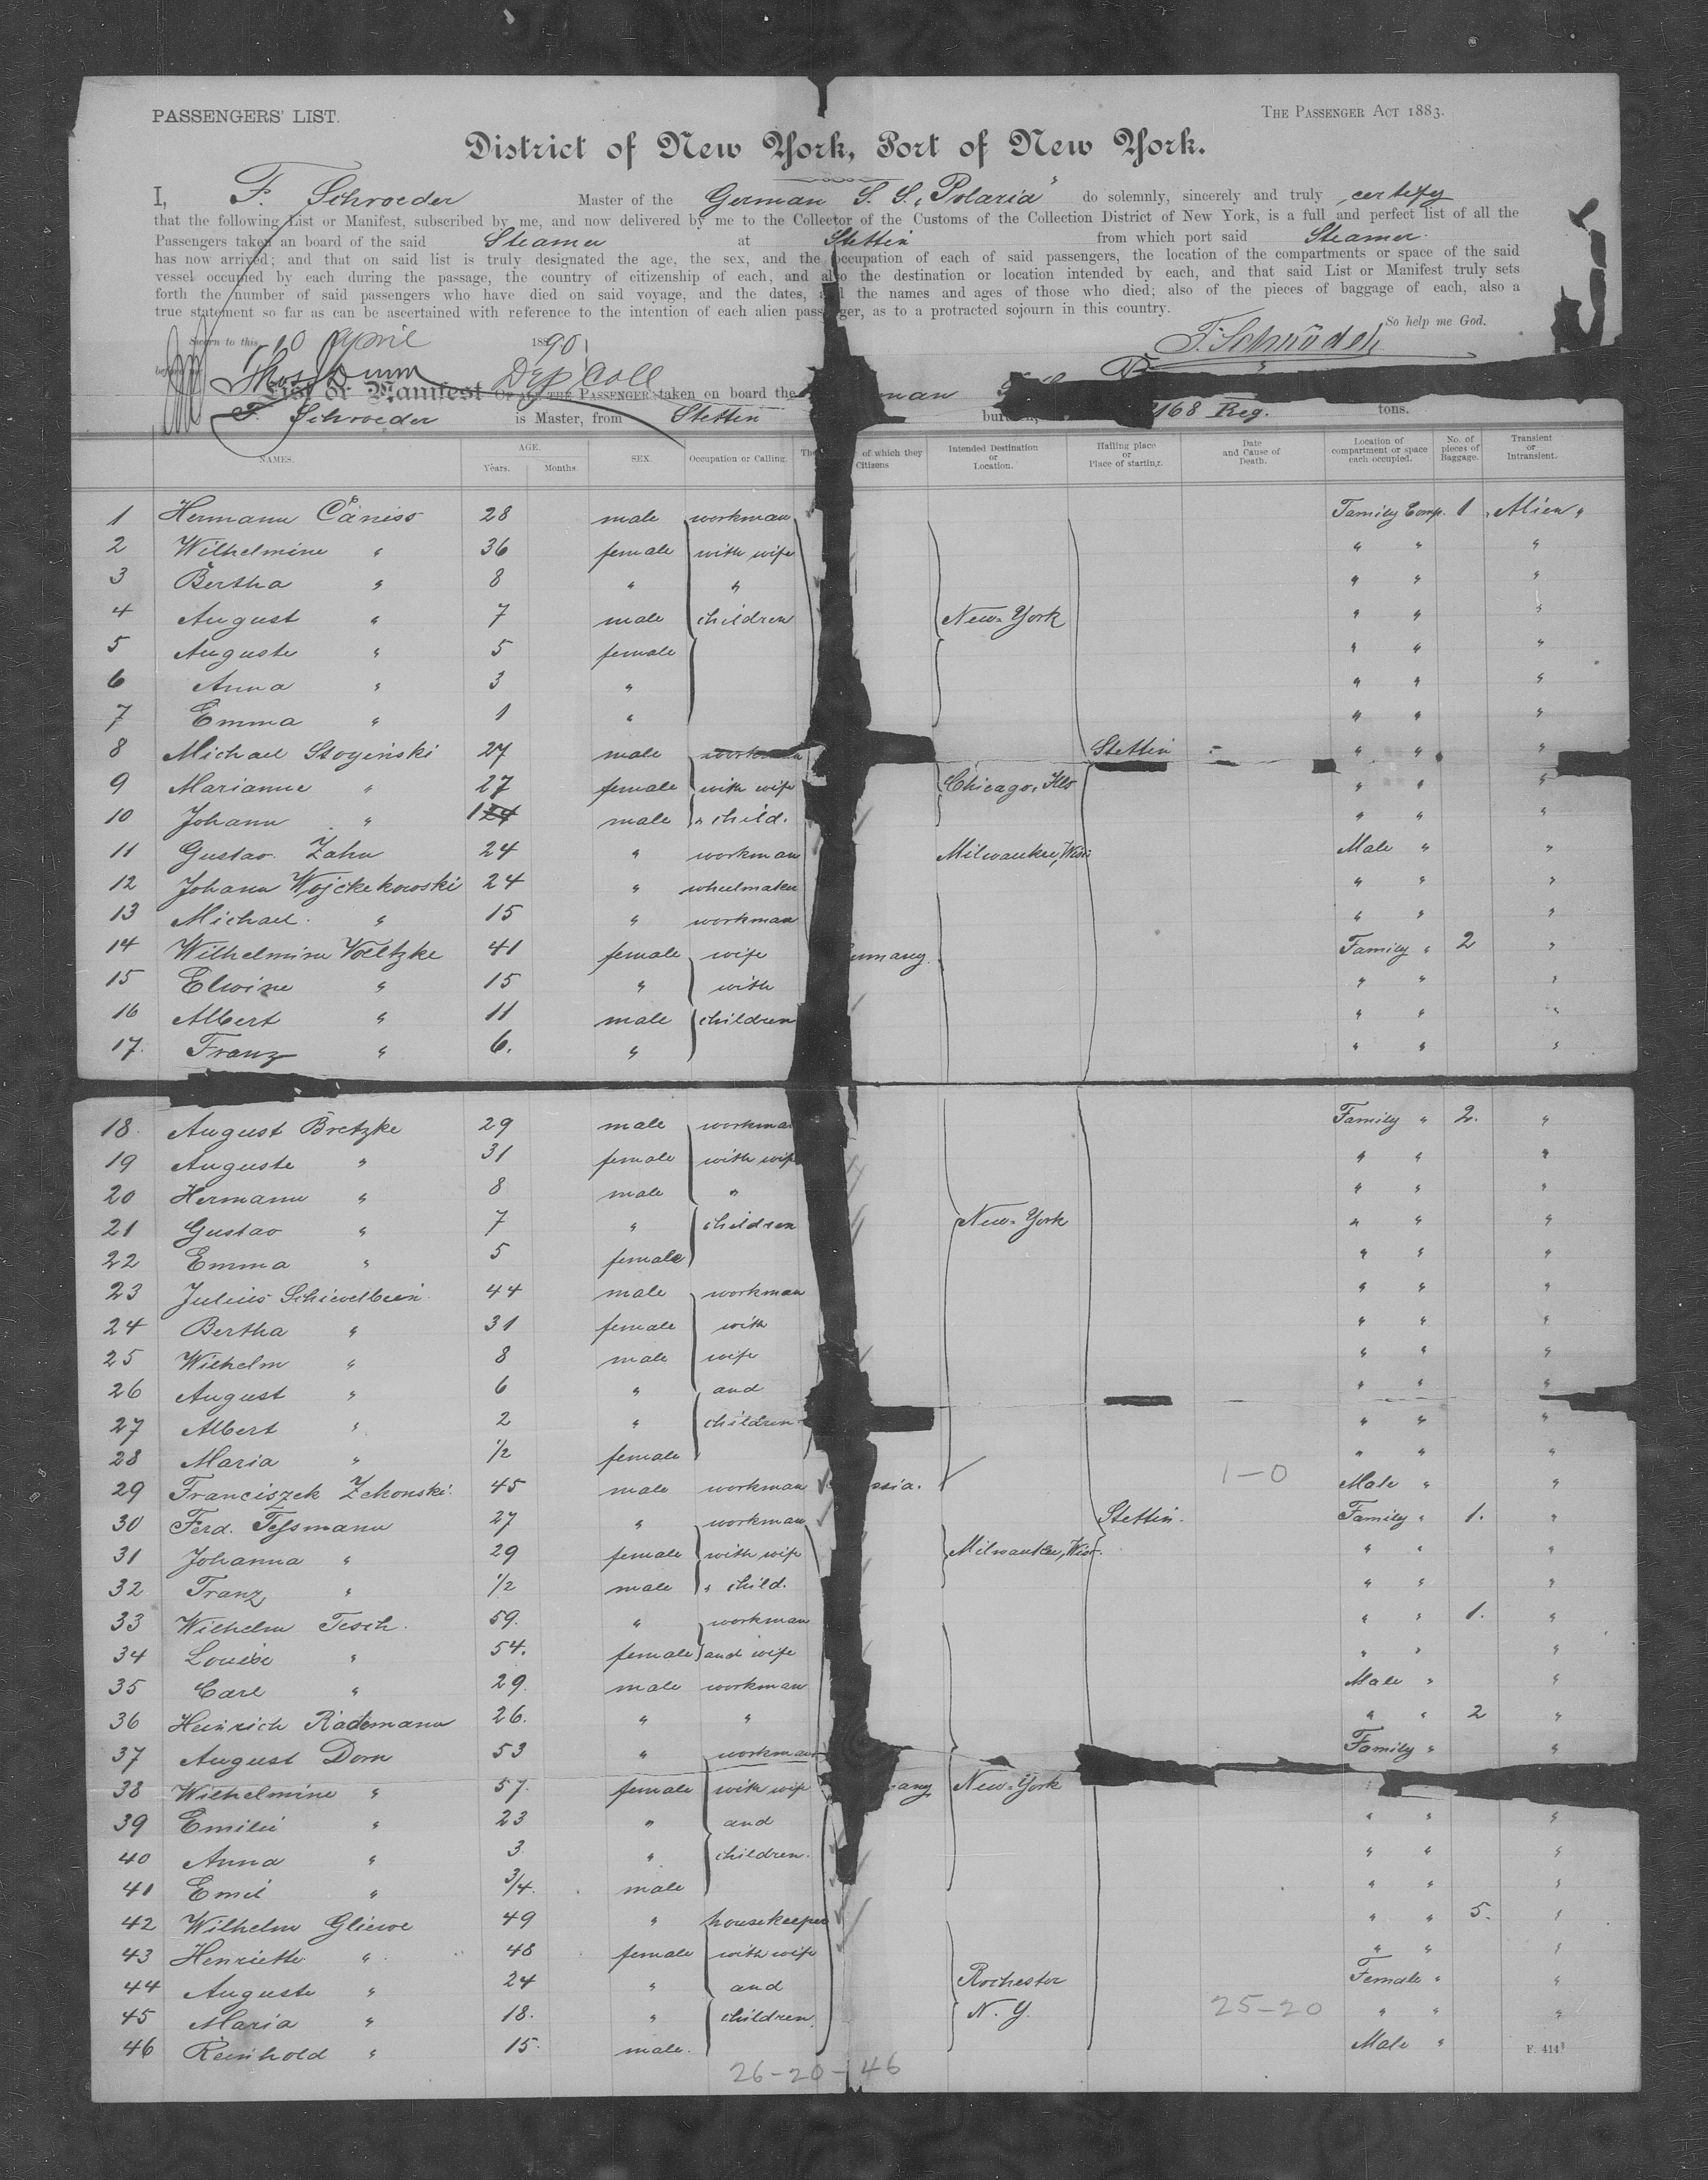 PASSENGERS' LIST.
THE PASSENGER ACT 1883.
District of New York, Port of New York.
I, F. Schroeder Master of the German S. S. „Polaria" do solemnly, sincerely and truly certify
that the following List or Manifest, subscribed by me, and now delivered by me to the Collector of the Customs of the Collection District of New York, is a full and perfect list of all the
Passengers taken an board of the said Steamer at Stettin from which port said Steamer.
has now arrived; and that on said list is truly designated the age, the sex, and the occupation of each of said passengers, the location of the compartments or space of the said
vessel occupied by each during the passage, the country of citizenship of each, and also the destination or location intended by each, and that said List or Manifest truly sets
forth the number of said passengers who have died on said voyage, and the dates, the names and ages of those who died; also of the pieces of baggage of each, also a
true statement so far as can be ascertained with reference to the intention of each alien passenger, as to a protracted sojourn in this country.
So help me God.
Sworn to this 10 April 1890
F. Schröder
Thos Dunn Dep Coll
List or Manifest OF ALL THE PASSENGERS taken on board the
F. Schroeder is Master, from Stettin 168 Reg. tons.
NAMES. AGE. Years. Months. SEX. Occupation or Calling. of which they Citizens Intended Destination or Location. Hailing place or Place of starting. Date and Cause of Death. Location of compartment or space each occupied. No. of pieces of Baggage. Transient or Intransient.
1 Hermann Caniss 28 male workman Family Comp. 1 „Alien„
2 Wilhelmine " 36 female with wife " " "
3 Bertha " 8 " " " " "
4 August " 7 male children New-York " " "
5 Auguste " 5 female " " "
6 Anna " 3 " " " "
7 Emma " 1 " " " "
8 Michael Stoyinski 27 male workman Stettin " " "
9 Marianne " 27 female with wife Chicago, Ills " " "
10 Johann " 1 male " child. " " "
11 Gustav Zahn 24 " workman Milwaukee, Wisc. Male " "
12 Johann Wojckekowski 24 " wheelmaker " " "
13 Michael " 15 " workman " " "
14 Wilhelmine Voeltzke 41 female wife many. Family " 2 "
15 Elwine " 15 " with " " "
16 Albert " 11 male children " " "
17. Franz " 6. " " " "
18. August Bretzke 29 male workman Family " 2. "
19 Auguste " 31 female with wife " " "
20 Hermann " 8 male " " " "
21 Gustav " 7 " children New-York " " "
22 Emma " 5 female " " "
23 Julius Schievelbein 44 male workman " " "
24 Bertha " 31 female with " " "
25 Wilhelm " 8 male wife " " "
26 August " 6 " and " " "
27 Albert " 2 " children " " "
28 Maria " 1/2 female " " "
29 Franciszek Zekonski 45 male workman ssia. 1-0 Male " "
30 Ferd. Tessmann 27 " workman Stettin. Family " 1. "
31 Johanna " 29 female with wife Milwaukee, Wisc. " " "
32 Franz " 1/2 male " child. " " "
33 Wilhelm Tesch. 59. " workman " " 1. "
34 Louise " 54. female and wife " " "
35 Carl " 29. male workman Male " "
36 Heinrich Rademann 26. " " " " 2 "
37 August Dorn 53 " workman Family " "
38 Wilhelmine " 57. female with wife any New-York
39 Emilie " 23 " and " " "
40 Anna " 3 " children. " " "
41 Emil " 3/4. male " " "
42 Wilhelm Gliewe 49 " housekeeper " " 5. "
43 Henriette " 48 female with wife " " "
44 Auguste " 24 " and Rochester Female " "
45 Maria " 18. " children. N. Y. 25-20 " " "
46 Reinhold " 15. male. Male "
F. 414
26-20-46